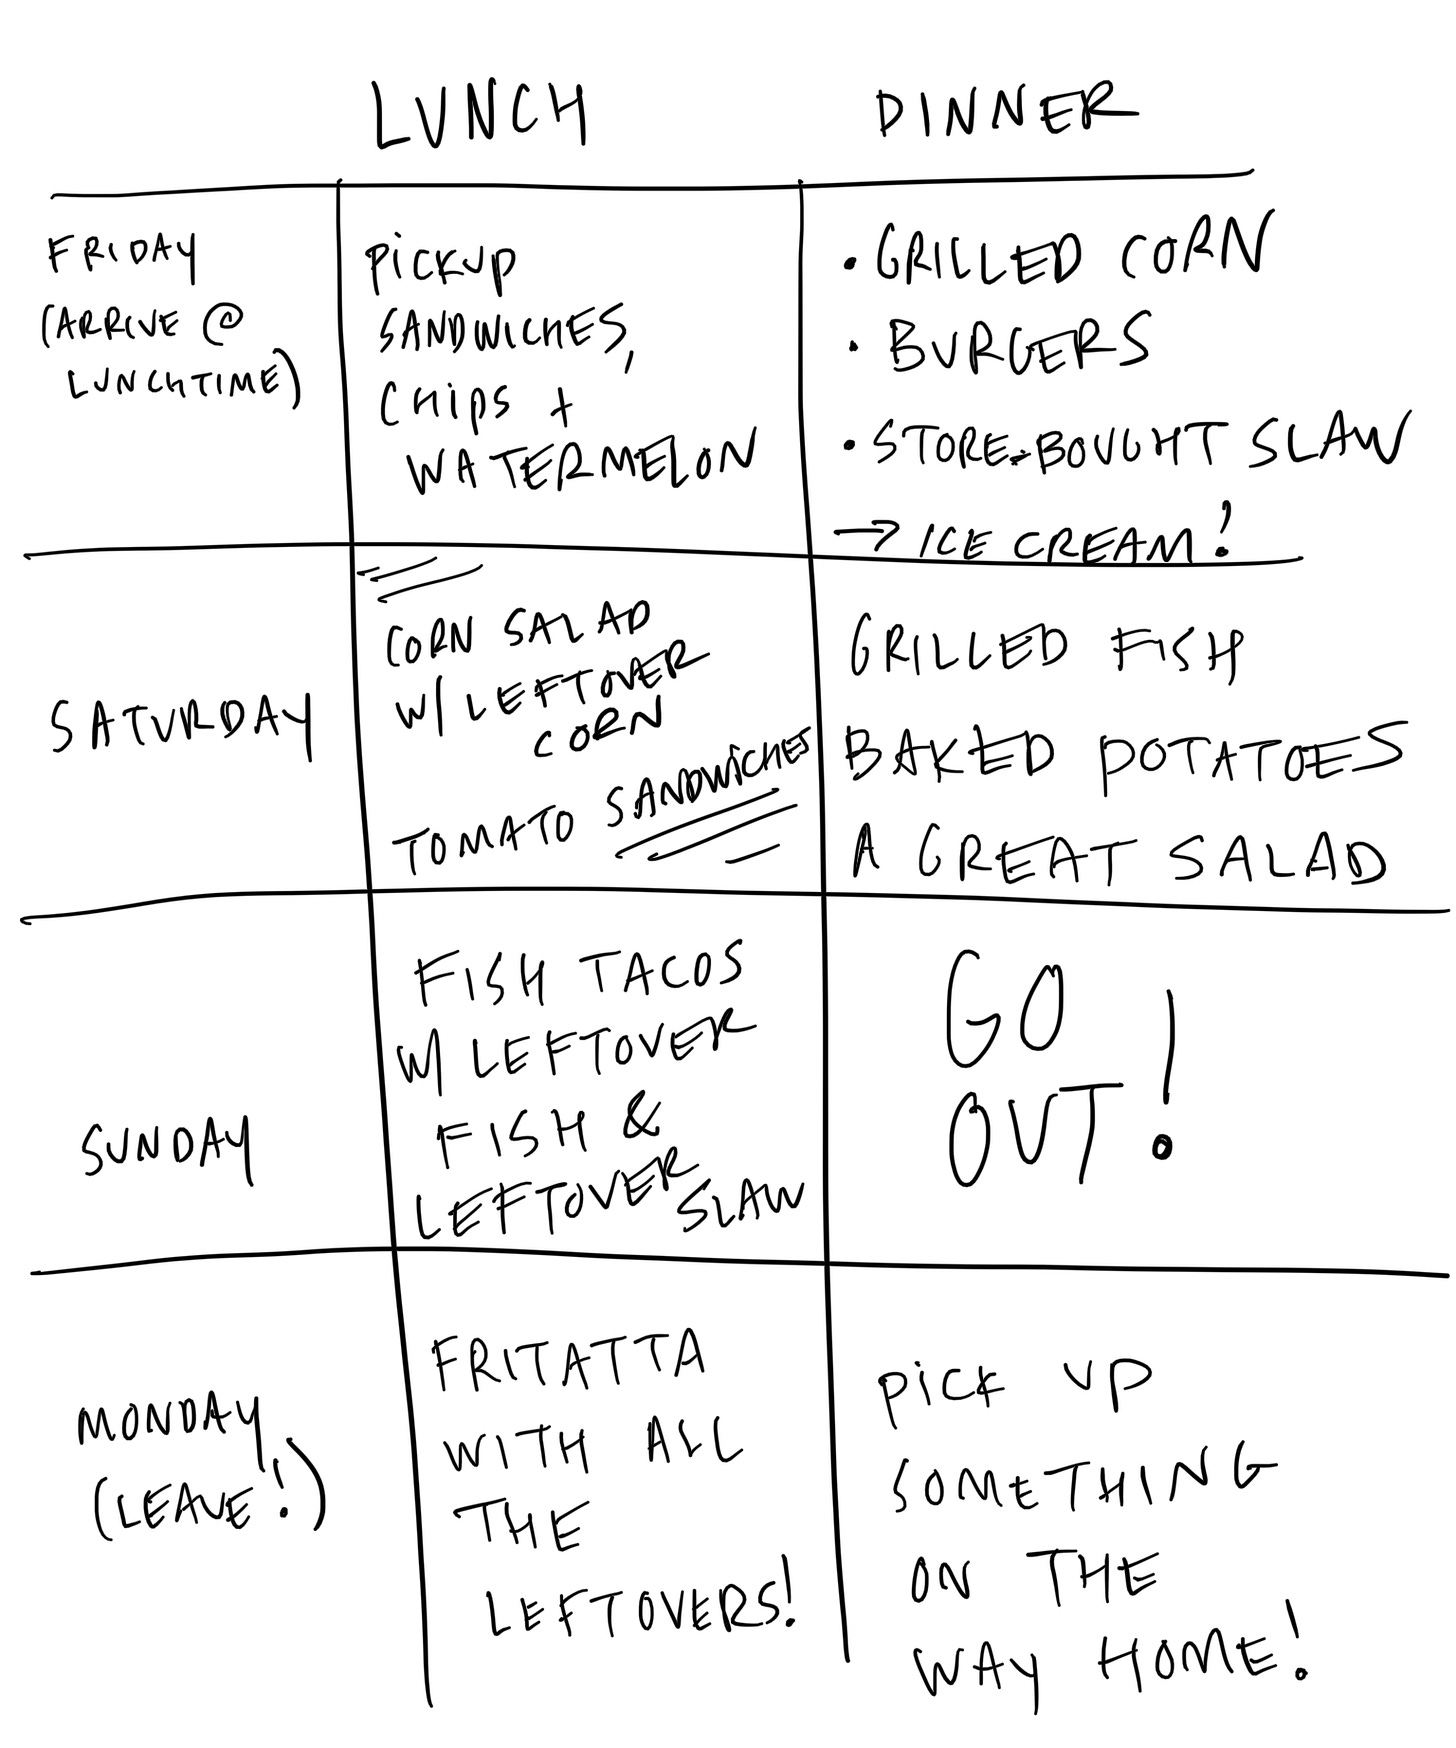 LUNCH
DINNER
FRIDAY
(ARRIVE @
LUNCHTIME)
PICKUP
SANDWICHES,
CHIPS +
WATERMELON
• GRILLED CORN
• BURGERS
• STORE-BOUGHT SLAW
→ ICE CREAM!
SATURDAY
CORN SALAD
W/ LEFTOVER
CORN
TOMATO SANDWICHES
GRILLED FISH
BAKED POTATOES
A GREAT SALAD
SUNDAY
FISH TACOS
W/ LEFTOVER
FISH &
LEFTOVER SLAW
GO
OUT!
MONDAY
(LEAVE!)
FRITATTA
WITH ALL
THE
LEFTOVERS!
PICK UP
SOMETHING
ON THE
WAY HOME!